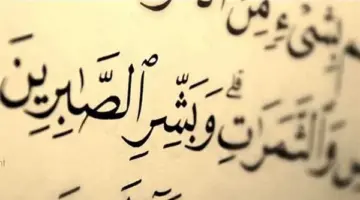 بِشَيْءٍ مِنَ
وَالثَّمَرَٰتِ ۗ وَبَشِّرِ ٱلصَّٰبِرِينَ